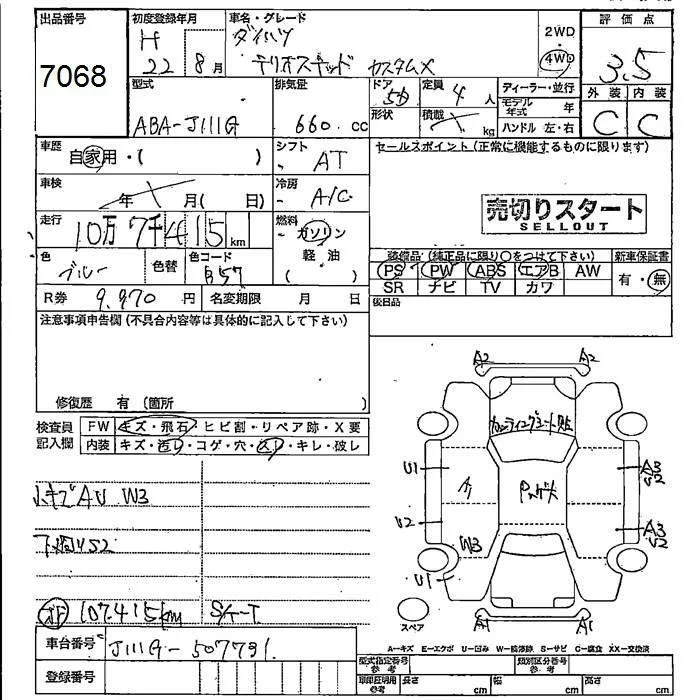 出品番号 7068
初度登録年月 H 22 8月
車名・グレード ダイハツ
テリオスキッド カスタムX
2WD
4WD
評価点 3.5
外装 内装
C C
型式 ABA-J111G
排気量 660 cc
ドア 5D
形状
定員 4 人
積載 kg
ディーラー・並行
モデル年式 年
ハンドル 左・右
車歴 自家用・( )
シフト AT
セールスポイント(正常に機能するものに限ります)
車検 年 月( 日)
冷房 A/C
売切りスタート
SELLOUT
走行 10万7千415km
燃料 ガソリン
軽油
( )
色 ブルー
色替
色コード B57
装備品(純正品に限り○をつけて下さい)
新車保証書
PS PW ABS エアB AW
SR ナビ TV カワ
有・無
R券 9.970円
名変期限 月 日
後日品
注意事項申告欄(不具合内容等は具体的に記入して下さい)
修復歴 有 (箇所 )
検査員記入欄
FW キズ・飛石・ヒビ割・リペア跡・X要
内装 キズ・汚れ・コゲ・穴・スレ・キレ・破レ
小キズAU W3
107.415km
車台番号 J111G-507791
登録番号
A2 A2
U1 A1 A3
U2
U2 A3
U2
W3
U1
A1 A1
スペア
A-キズ E-エクボ U-凹み W-補修跡 S-サビ C-腐食 XX-交換済
型式指定番号 参考
類別区分番号 参考
車庫証明用 参考 長さ cm 幅 cm 高さ cm